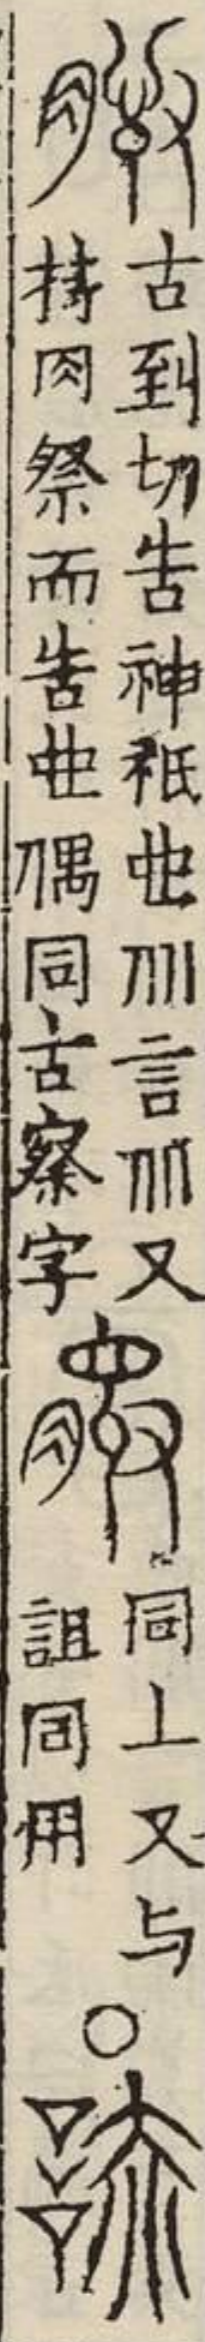 古到切告神祇也从言从又
持肉祭而告也偶同古察字
同上又与
詛同用
○